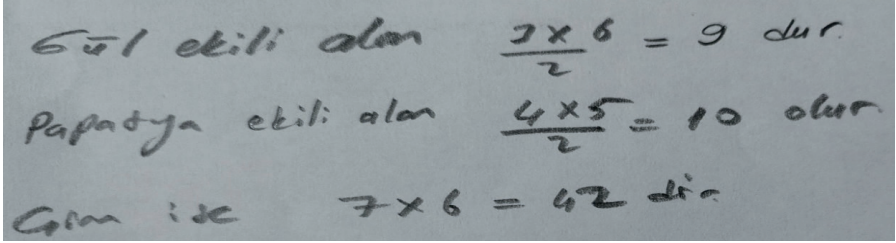 Gül ekili alan 3x6/2 = 9 dur.
Papatya ekili alan 4x5/2 = 10 olur.
Çim ise 7x6 = 42 dir